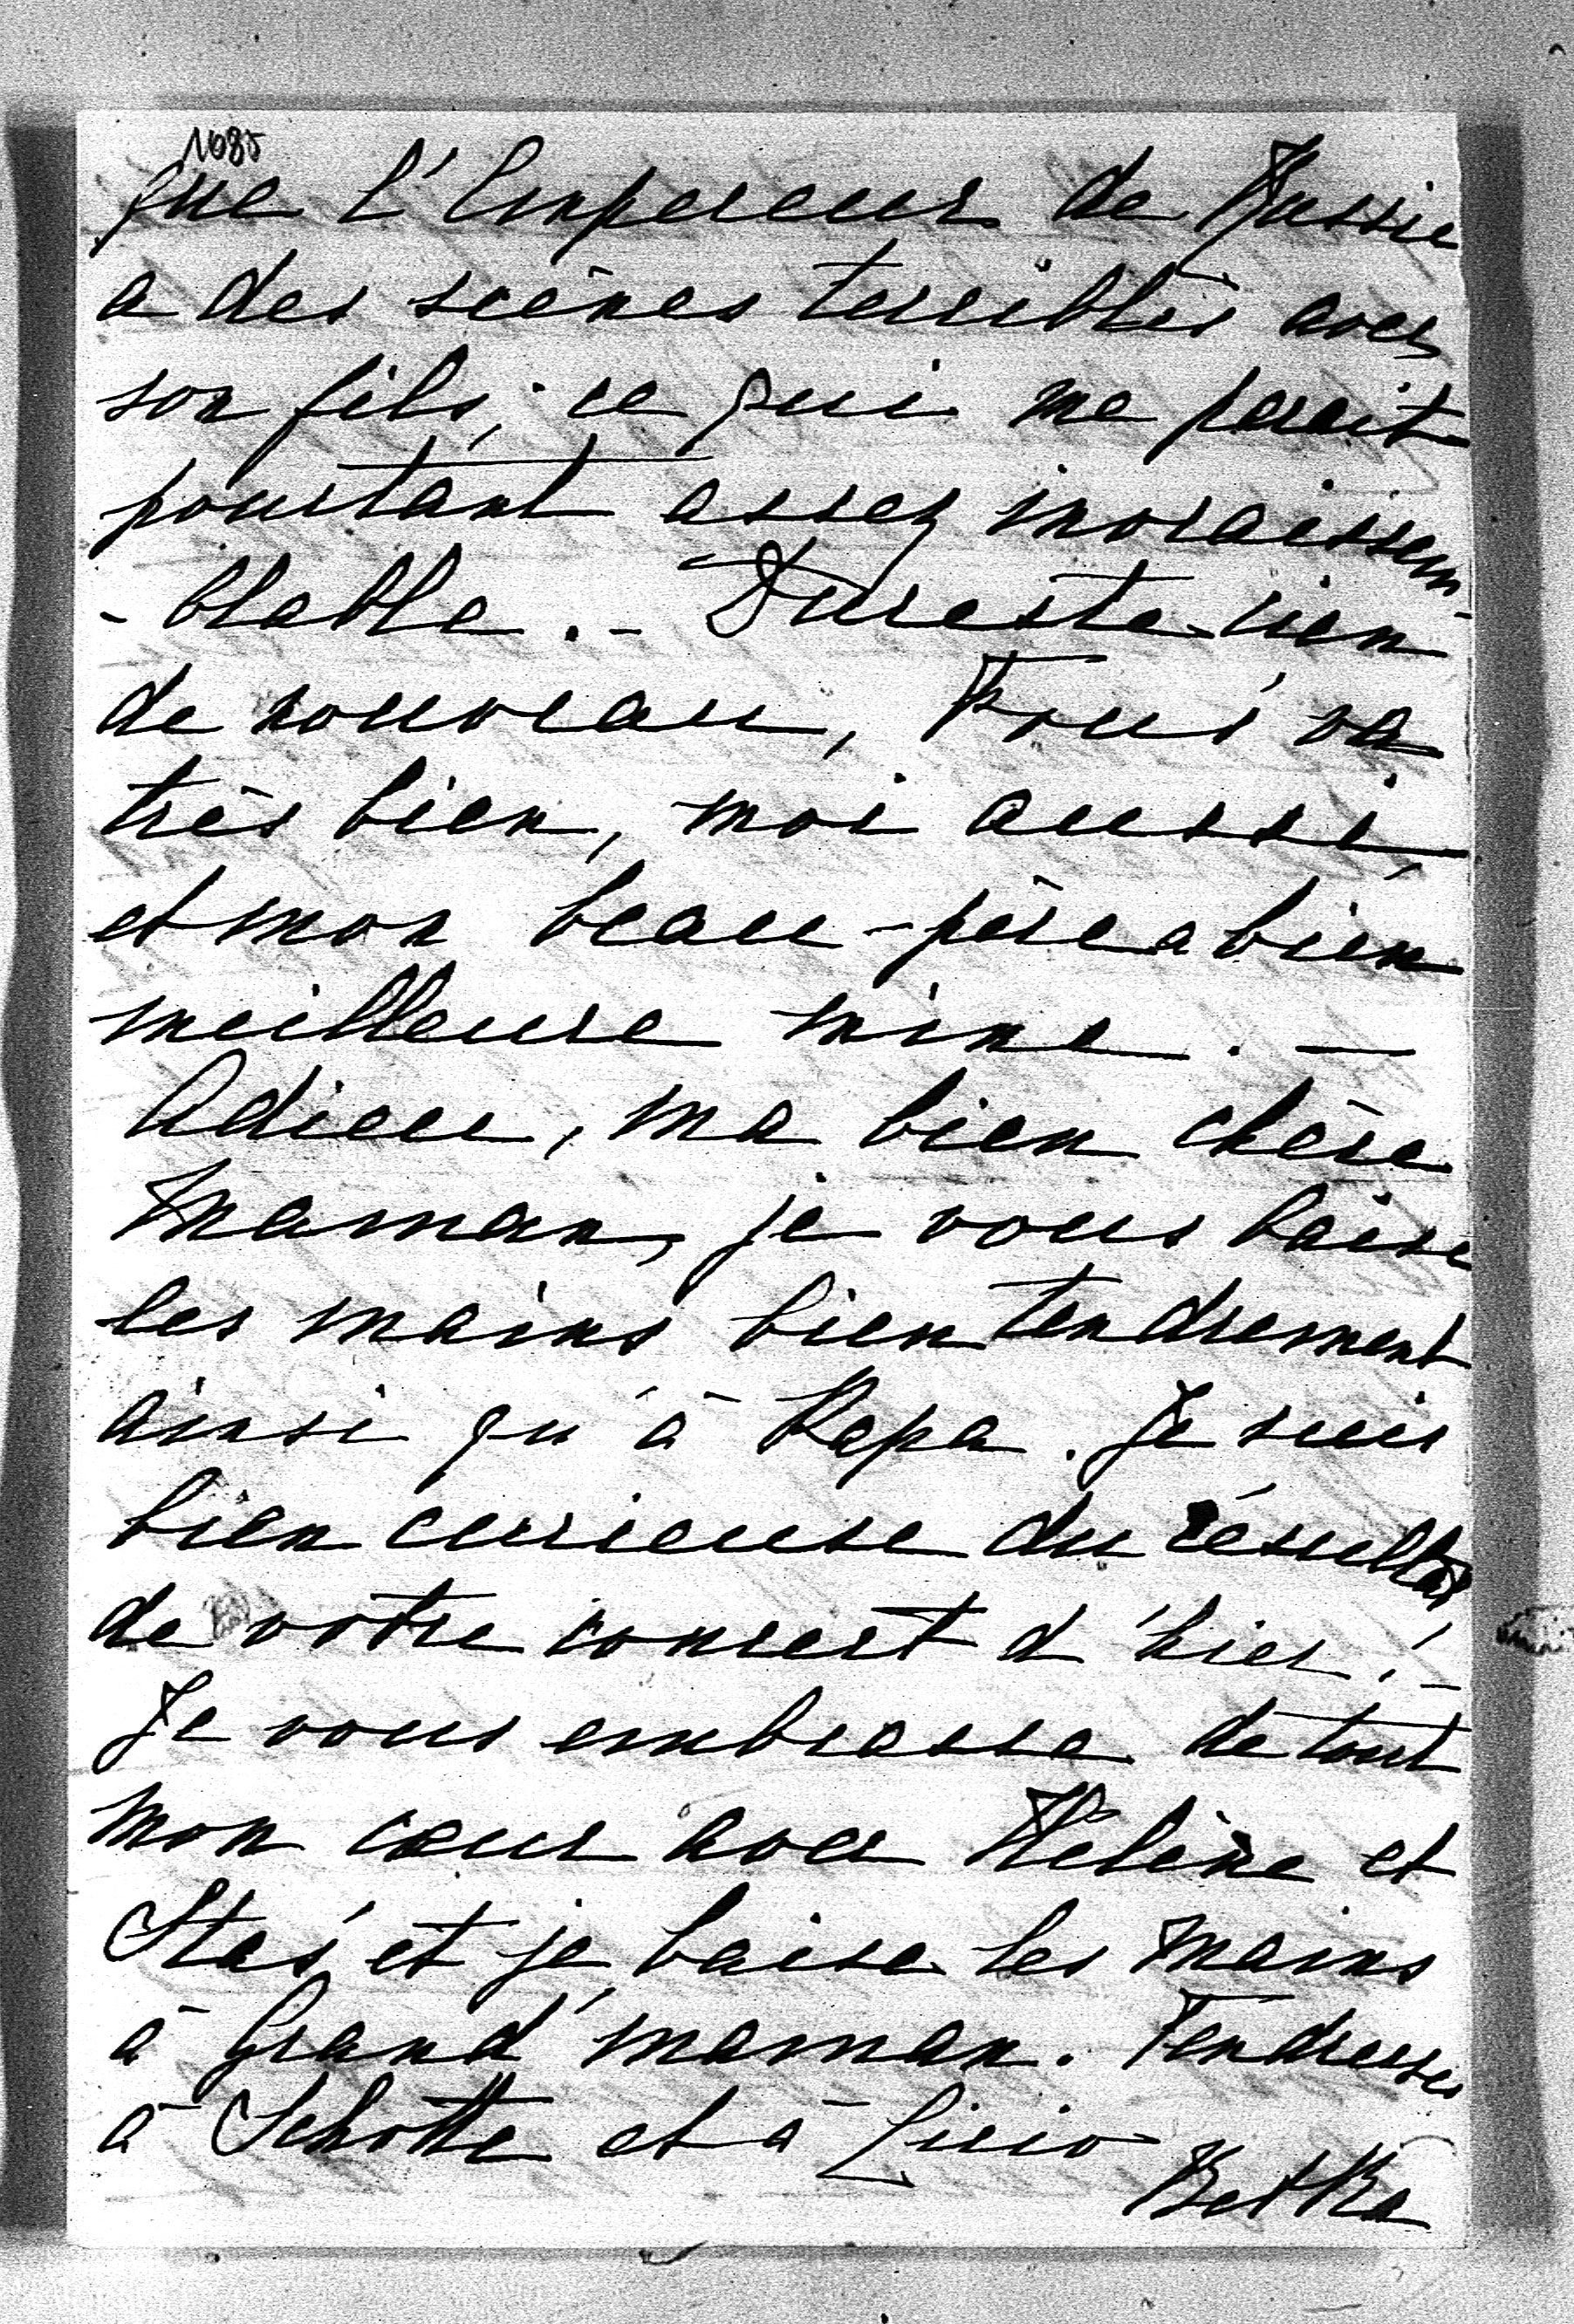 1685
que l'Empereur de Russie
a des scènes terribles avec
son fils, ce qui me parait
pourtant assez invraissem-
-blable. – Dureste rien
de nouveau, va
très bien, moi aussi,
et mon beau-père a bien
meilleure mine. –
Adieu, ma bien chère
Maman, je vous baise
les mains bien tendrement
ainsi qu'à Papa. Je suis
bien curieuse du résultat
de votre concert d'hier! –
Je vous embrasse de tout
mon cœur avec Hélène et
Staś et je baise les mains
à Grand'maman. Tendresses
à Schotte et à
Betka